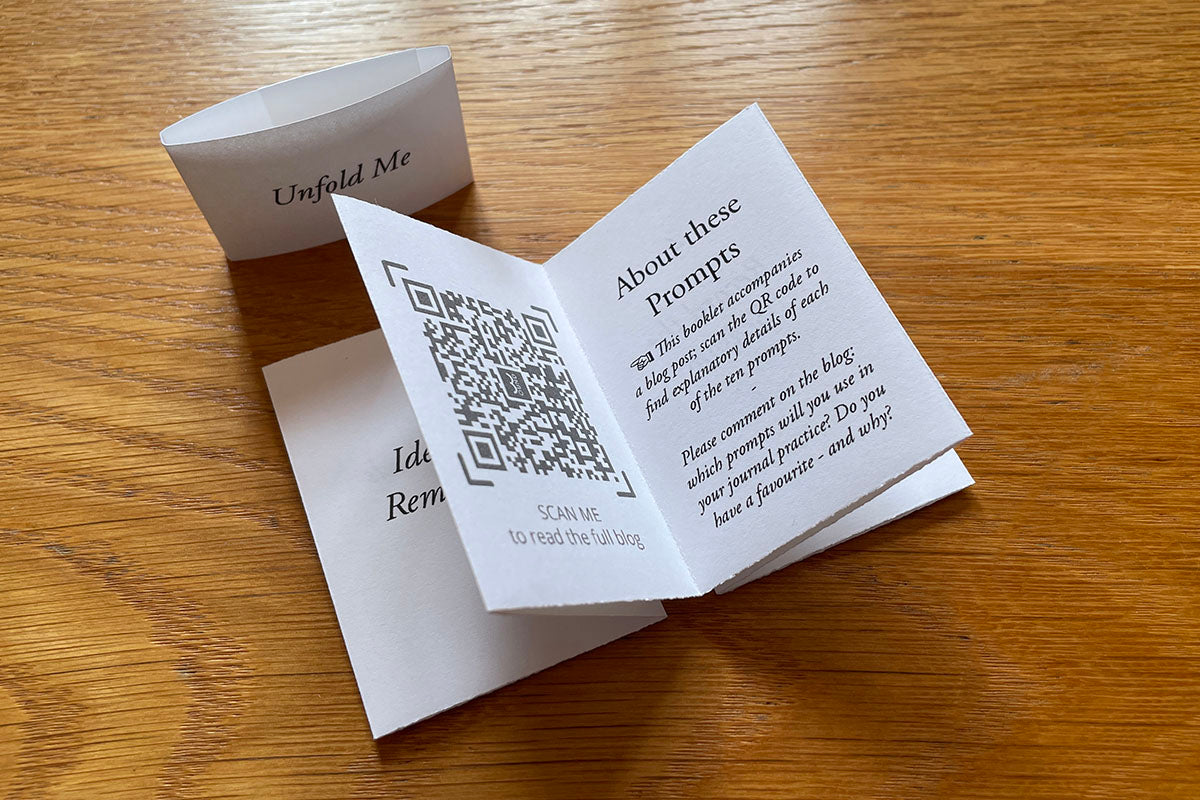 Unfold Me
About these
Prompts
☞ This booklet accompanies
a blog post; scan the QR code to
find explanatory details of each
of the ten prompts.
-
Please comment on the blog:
which prompts will you use in
your journal practice? Do you
have a favourite - and why?
SCAN ME
to read the full blog